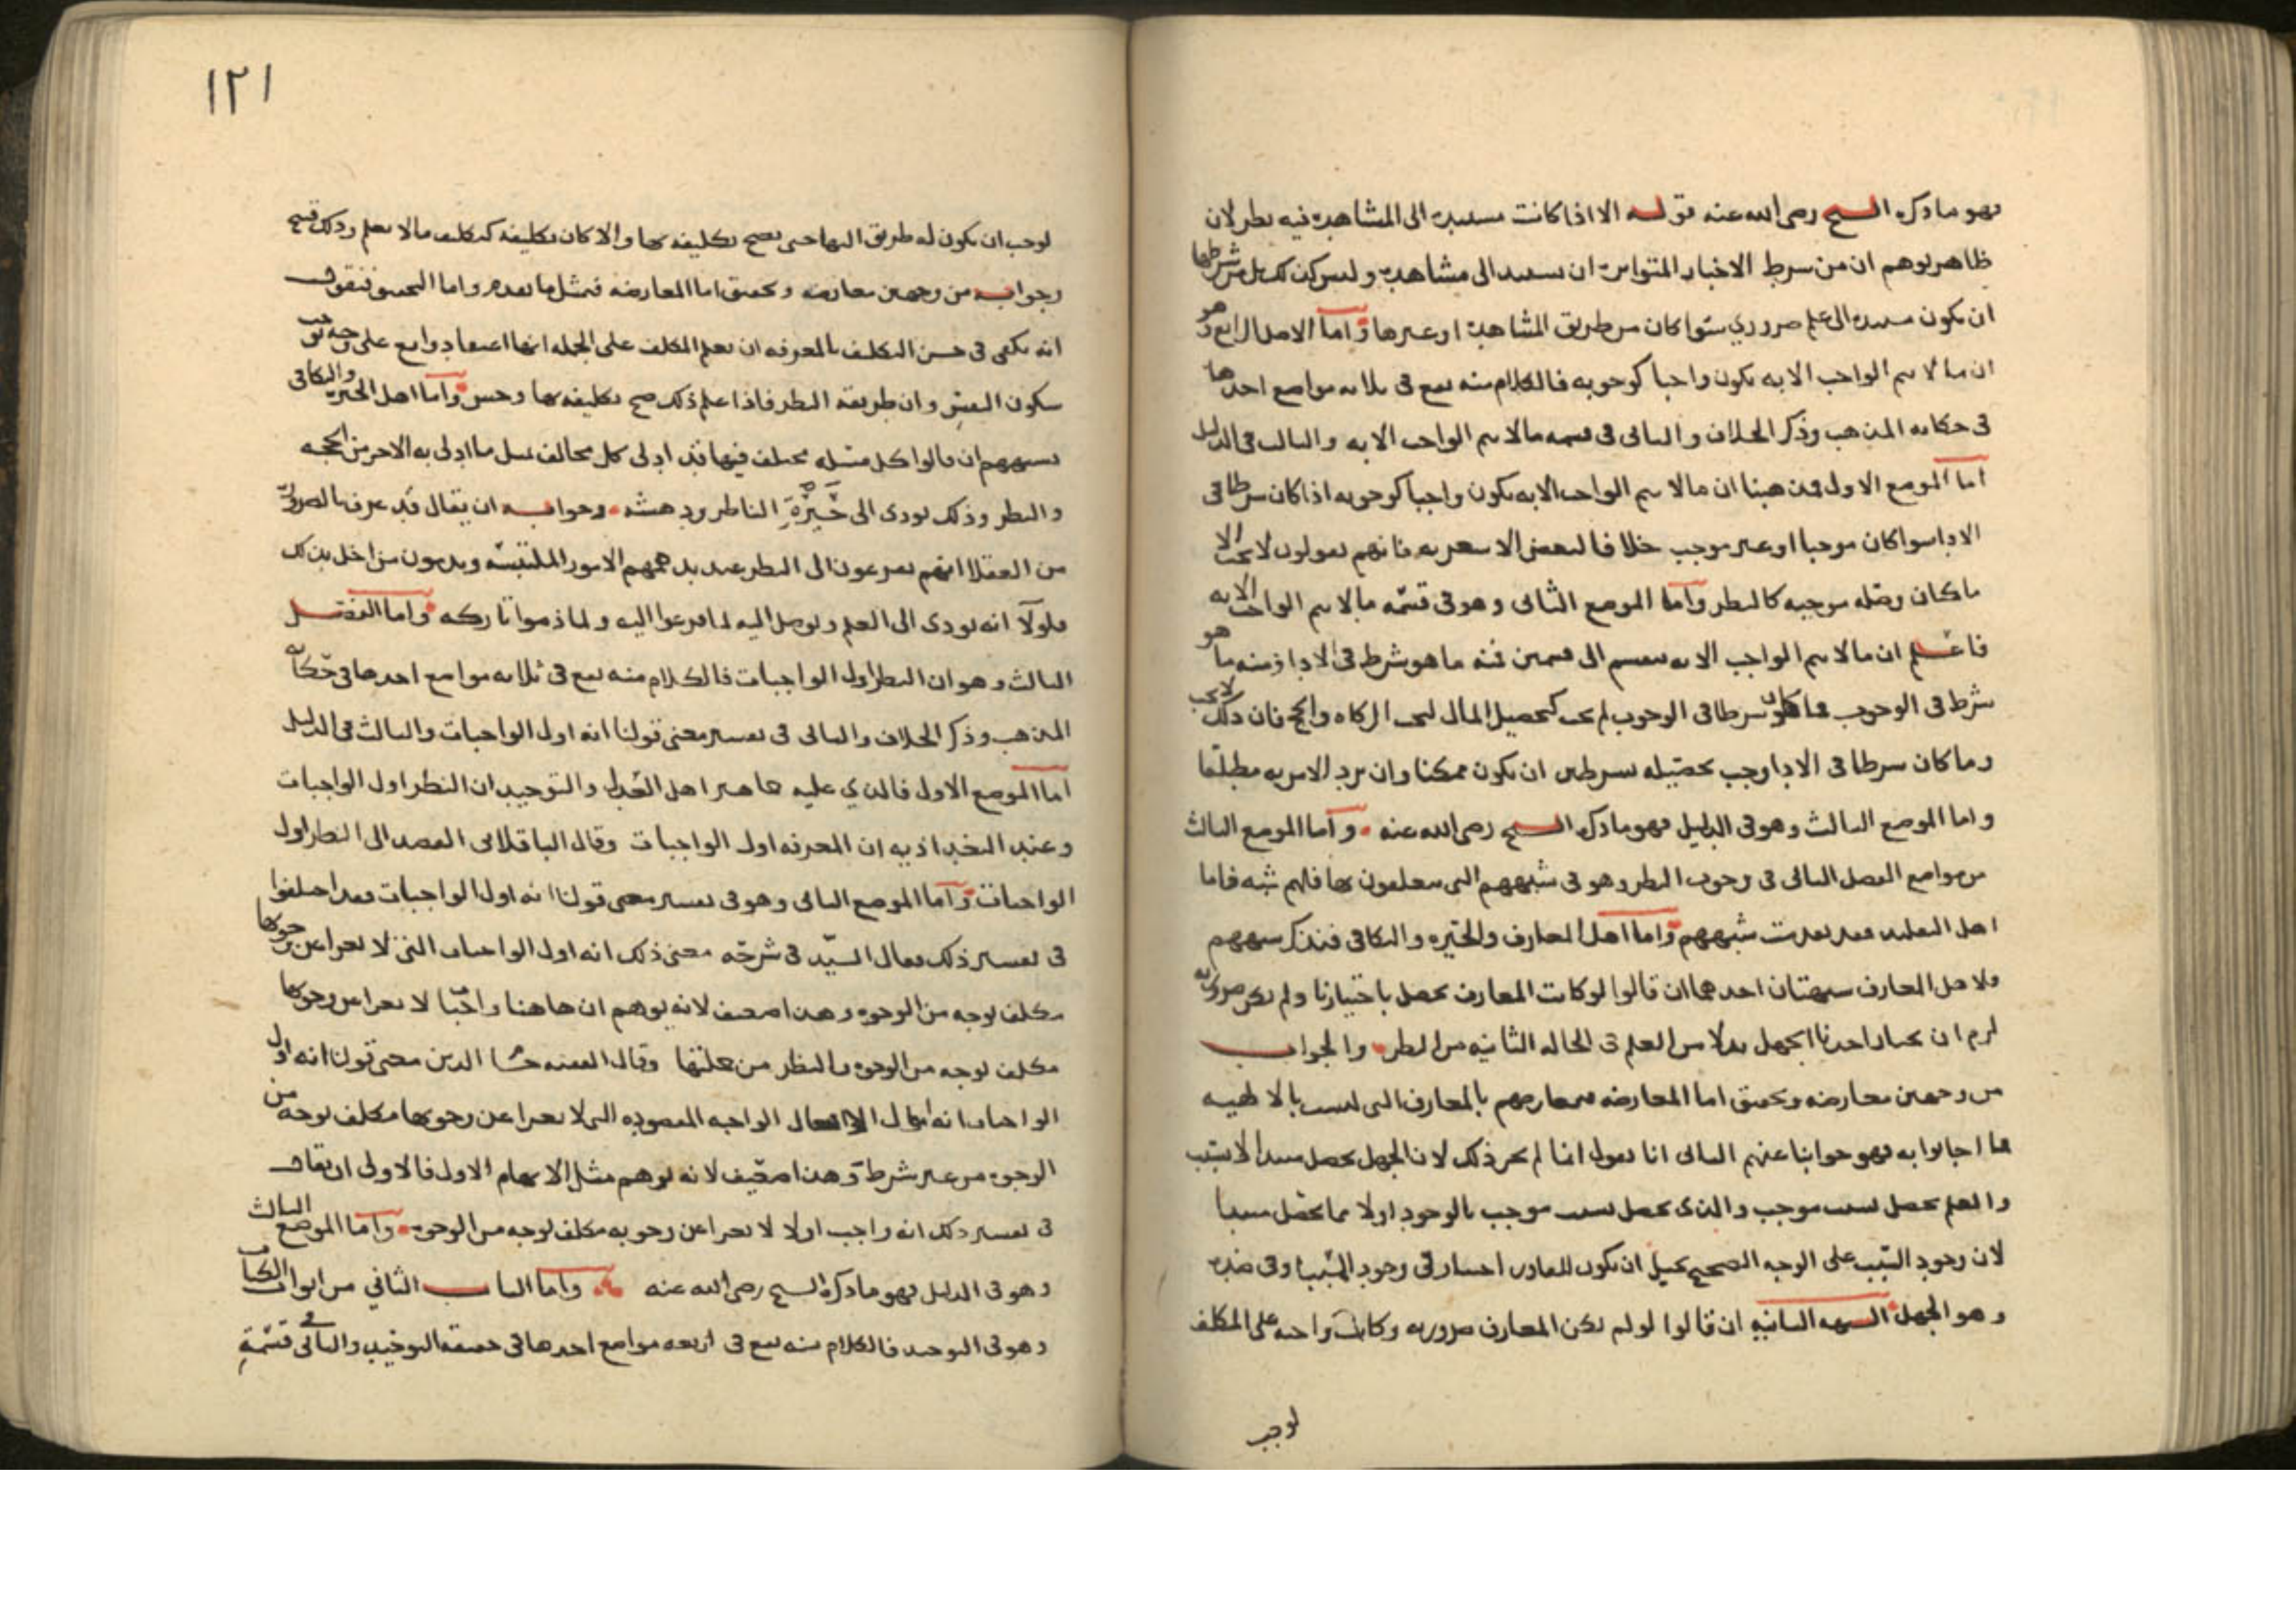 فهو ما ذكره الشيخ رضي الله عنه قوله الا اذا كانت مستندة الى المشاهدة فيه نظر لان
ظاهره يوهم ان من شرط الاخبار المتواترة ان تستند الى مشاهدة وليس كذلك بل من شرطها
ان تكون مستندة الى علم ضروري سوا كان من طريق المشاهدة او غيرها واما الاصل الرابع وهو
ان ما لا يتم الواجب الا به يكون واجبا كوجوبه فالكلام منه يقع في ثلاثة مواضع احدها
في حكاية المذهب وذكر الخلاف والثاني في قسمة ما لا يتم الواجب الا به والثالث في الدليل
اما الموضع الاول فمذهبنا ان ما لا يتم الواجب الا به يكون واجبا كوجوبه اذا كان شرطا في
الادا سوا كان موجبا او غير موجب خلافا لبعض الاشعرية فانهم يقولون لا يجب الا
ما كان وصله موجبه كالنظر واما الموضع الثاني وهو في قسمة ما لا يتم الواجب الا به
فاعلم ان ما لا يتم الواجب الا به ينقسم الى قسمين فمنه ما هو شرط في الادا ومنه ما هو
شرط في الوجوب فما كان شرطا في الوجوب لم يجب كتحصيل المال لتجب الزكاه والحج فان ذلك لا يجب
وما كان شرطا في الادا وجب تحصيله بشرطين ان يكون ممكنا وان يرد الامر به مطلقا
واما الموضع الثالث وهو في الدليل فهو ما ذكره الشيخ رضي الله عنه واما الموضع الثالث
من مواضع الفصل الثاني في وجوب النظر وهو في شبههم التي يتعلقون بها فلهم شبه فاما
اهل التقليد فقد تقدمت شبههم واما اهل المعارف والحيره والتكافي فنذكر شبههم
ولاهل المعارف شبهتان احدهما ان قالوا لو كانت المعارف تحصل باختيارنا ولم تكن ضروريه
لزم ان يختار احدنا الجهل بدلا من العلم في الحاله الثانيه من النظر والجواب
من وجهين معارضه وتحقيق اما المعارضه فنعارضهم بالمعارف التي ليست بالالهيه
فما اجابوا به فهو جوابنا عنهم الثاني انا نقول انما لم يجز ذلك لان الجهل يحصل مبتدا لا بسبب
والعلم يحصل بسبب موجب والذي يحصل بسبب موجب بالوجود اولا مما يحصل مبتدا
لان وجود السبب على الوجه الصحيح يحيل ان يكون للقادر اختيار في وجود المسبب وفي ضده
وهو الجهل الشبهه الثانيه ان قالوا لو لم تكن المعارف ضروريه وكانت واجبه على المكلف
لوجب
١٢١
لوجب ان يكون له طريق اليها حتى يصح تكليفه بها والا كان تكليفه كتكليف ما لا يعلم وذلك قبيح
وجوابه من وجهين معارضه وتحقيق اما المعارضه فبمثل ما تقدم واما التحقيق فنقول
انه يكفي في حسن التكليف بالمعرفه ان يعلم المكلف على الجمله انها اعتقاد واقع على وجه يوجب
سكون النفس وان طريقه النظر فاذا علم ذلك صح تكليفه بها وحسن واما اهل الحيره والتكافي
فشبهتهم ان قالوا كل مسئله مختلف فيها قد ادلى كل مخالف بمثل ما ادلى به الاخر من الحجه
والنظر وذلك يودي الى حَيْرَةِ الناظر ودهشه وجوابه ان يقال قد عرفنا ضرورة
من العقلا انهم يفزعون الى النظر عند بدهمهم الامور الملتبسه ويذمون من اخل بذلك
فلولا انه يودي الى العلم ويوصل اليه لما فزعوا اليه ولما ذموا تاركه واما الفصل
الثالث وهو ان النظر اول الواجبات فالكلام منه يقع في ثلاثه مواضع احدها في حكاية
المذهب وذكر الخلاف والثاني في تفسير معنى قولنا انه اول الواجبات والثالث في الدليل
اما الموضع الاول فالذي عليه جماهير اهل العدل والتوحيد ان النظر اول الواجبات
وعند البغداذيه ان المعرفه اول الواجبات وقال الباقلاني القصد الى النظر اول
الواجبات واما الموضع الثاني وهو في تفسير معنى قولنا انه اول الواجبات فقد اختلفوا
في تفسير ذلك فقال السيّد في شرحه معنى ذلك انه اول الواجبات التي لا يعرا عن وجوبها
مكلف بوجه من الوجوه وهذا ضعيف لانه يوهم ان هاهنا واجبا لا يعرا عن وجوبها
مكلف بوجه من الوجوه والنظر من جملتها وقال الفقيه حسام الدين معنى قولنا انه اول
الواجبات انه اول الافعال الواجبه المقصوده التي لا يعرا عن وجوبها مكلف بوجه من
الوجوه من غير شرط وهذا ضعيف لانه يوهم مثل الابهام الاول فالاولى ان يقال
في تفسير ذلك انه واجب اولا لا يعرا عن وجوبه مكلف بوجه من الوجوه واما الموضع الثالث
وهو في الدليل فهو ما ذكره الشيخ رضي الله عنه واما الباب الثاني من ابواب الكتاب
وهو في التوحيد فالكلام منه يقع في اربعه مواضع احدها في حقيقة التوحيد والثاني في قسمة